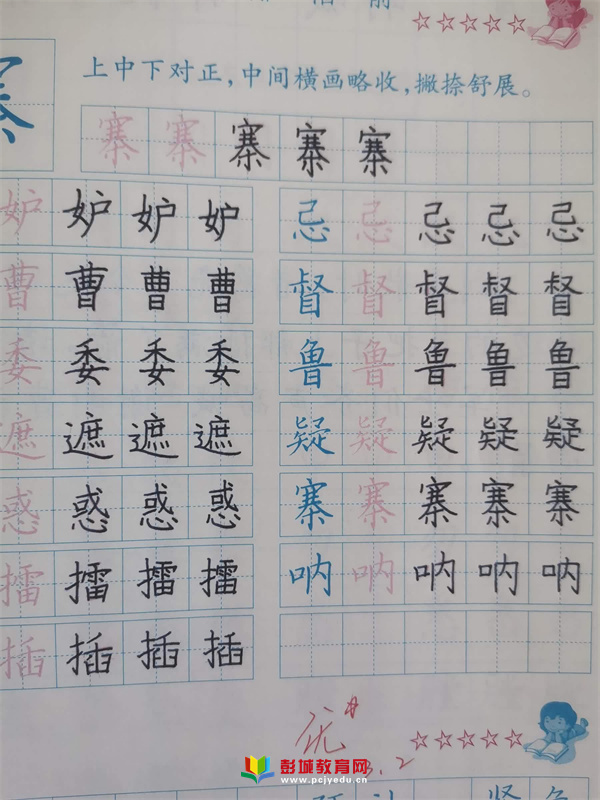 上中下对正,中间横画略收,撇捺舒展。
寨 寨 寨 寨 寨 寨
妒 妒 妒 妒 忌 忌 忌 忌 忌
曹 曹 曹 曹 督 督 督 督 督
委 委 委 委 鲁 鲁 鲁 鲁 鲁
遮 遮 遮 遮 疑 疑 疑 疑 疑
惑 惑 惑 惑 寨 寨 寨 寨 寨
擂 擂 擂 擂 呐 呐 呐 呐 呐
插 插 插 插
优
3.2
彭城教育网
www.pcjyedu.cn